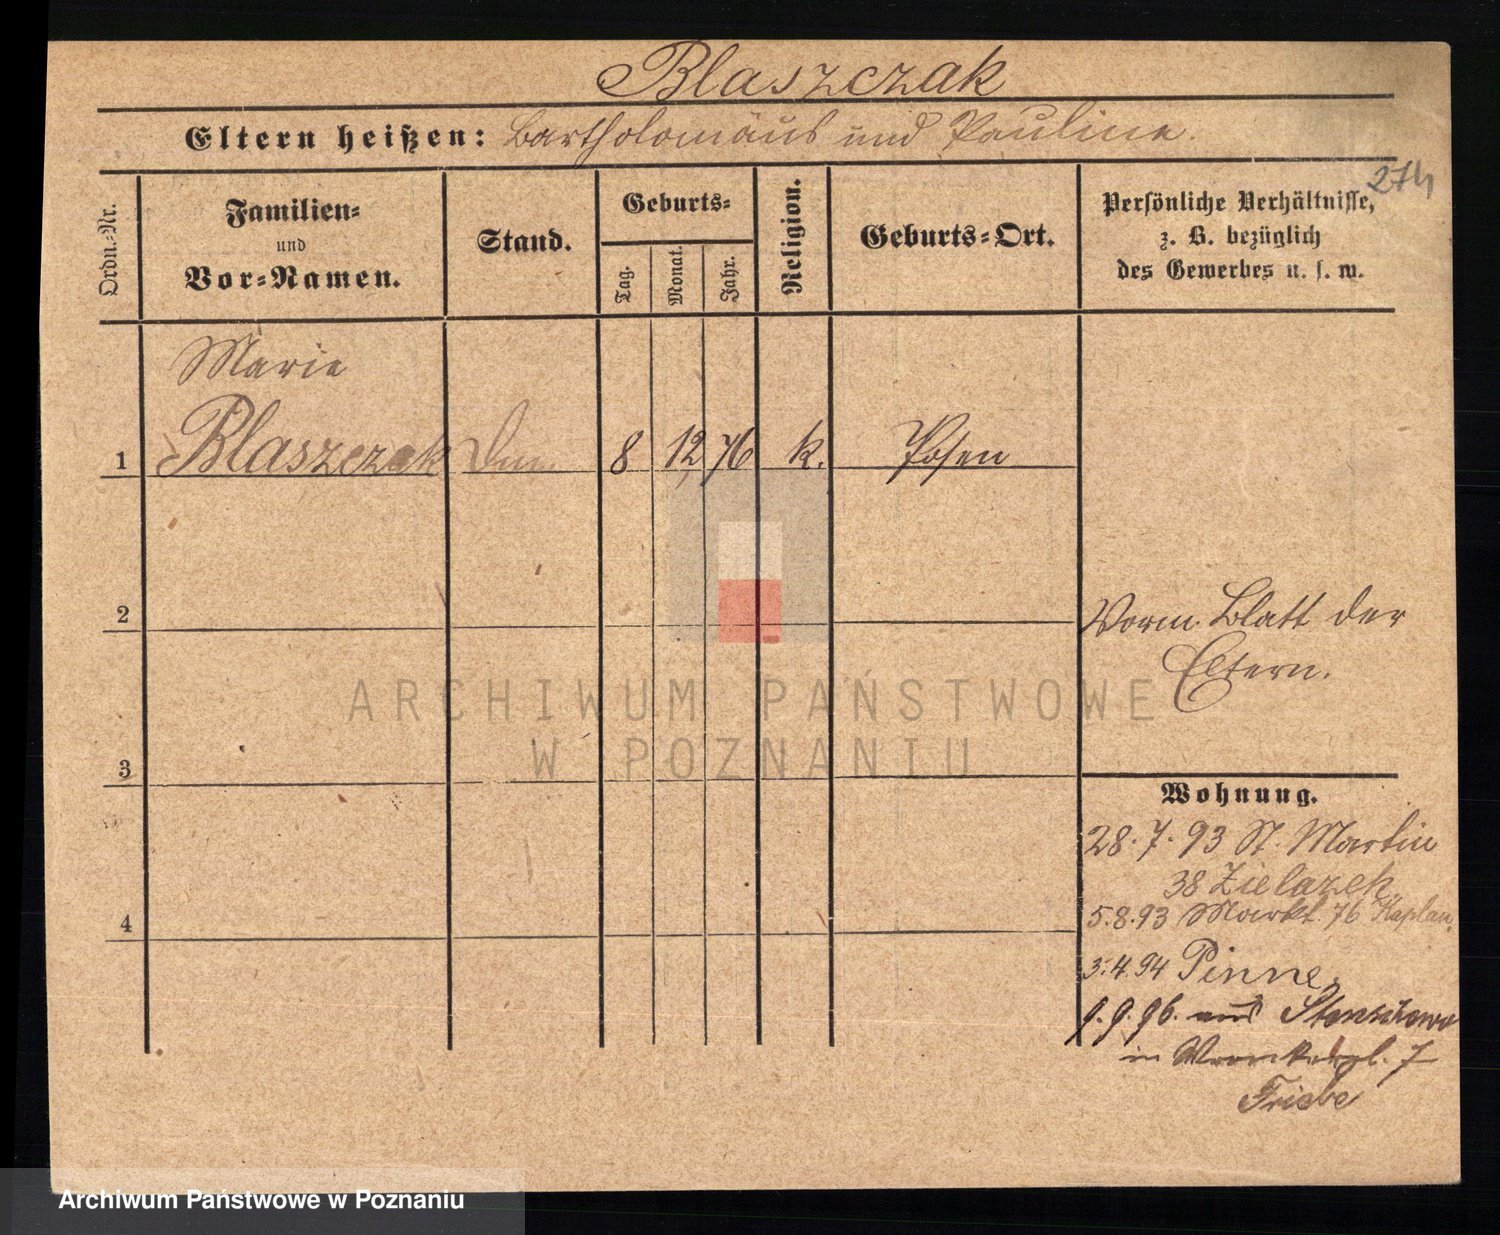 Blaszczak
Eltern heißen: Bartholomäus und Pauline.
274
Ordn.-Nr.
Familien-
und
Vor-Namen.
Stand.
Geburts-
Tag.
Monat.
Jahr.
Religion.
Geburts-Ort.
Persönliche Verhältnisse,
z. B. bezüglich
des Gewerbes u. s. w.
Marie
1 Blaszczak 8 12 76 k. Posen
2
Vorm. Blatt der
Eltern.
3
Wohnung.
28. 7. 93 St. Martin
38 Zielazek
5.8.93 Markt. 76 Kaplan.
4
3.4.94 Pinne
9.9.96. aus Stenschewo
in Wronkerpl. 7
Friebe
ARCHIWUM PAŃSTWOWE
W POZNANIU
Archiwum Państwowe w Poznaniu